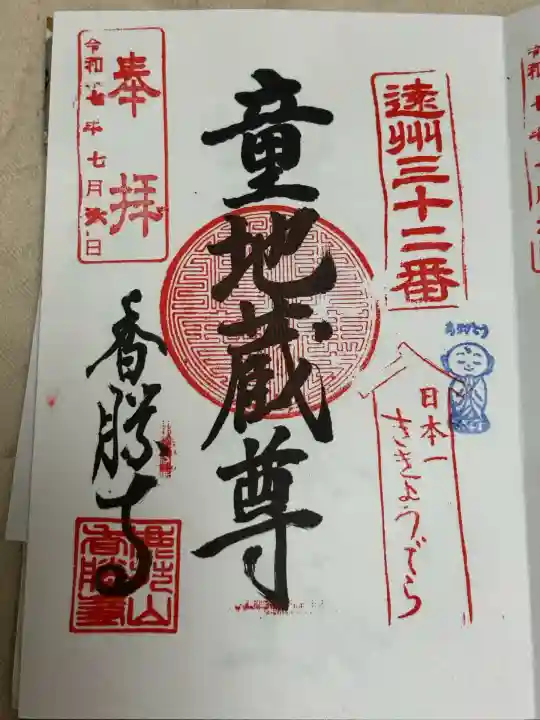 遠州三十三番
ありがとう
日本一
ききょうでら
童地蔵尊
奉拝
令和七年七月吉日
香勝寺
香勝寺